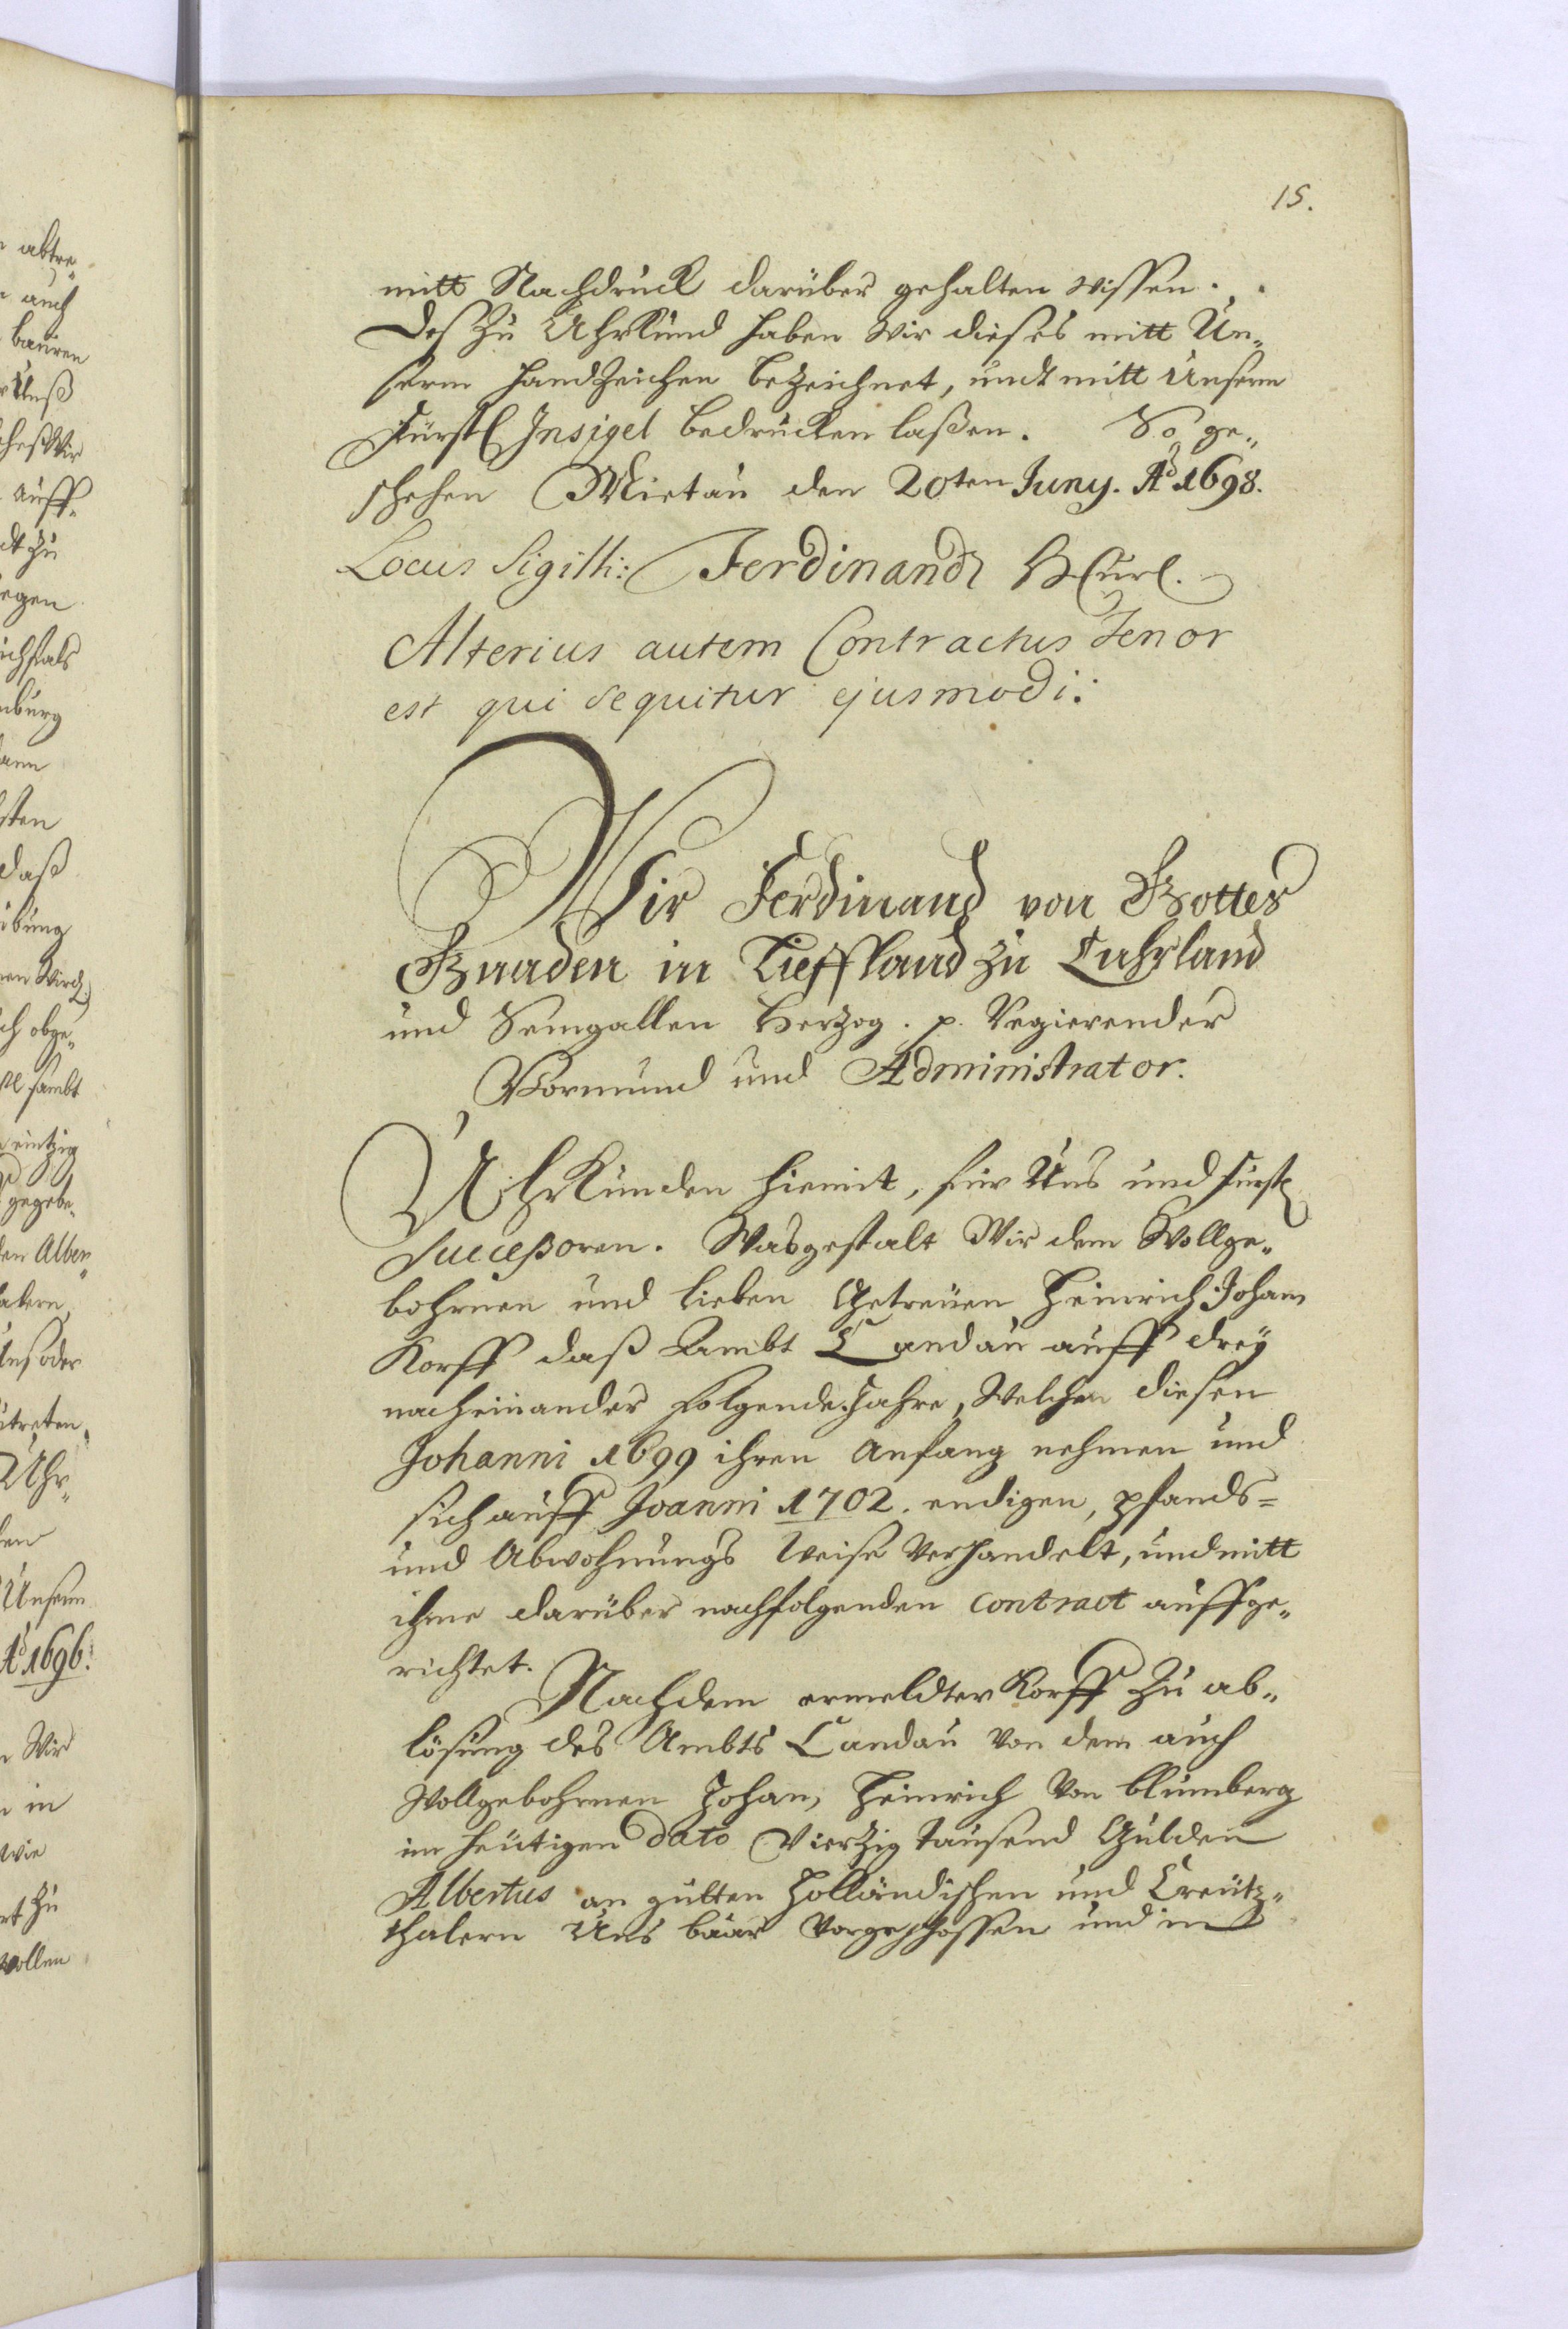 15.
mitt Nachdruck darüber gehalten wissen.
Deß zu Uhrkund haben wir dieses mitt Un„
serm Handzeichen bezeichnet, undt mitt Unserm
Fürstl Insigel bedrucken laßen. So ge„
schehen Mietau den 20ten Juny. Aō 1698.
Locus Sigilli: Ferdinandt HCurl.
Alterius autem Contractus Tenor
est qui sequitur ejusmodi:
Wir Ferdinand von Gottes
Gnaden in Lieffland zu Cuhrland
und Semgallen Herzog. p. Regierender
Vormund und Administrator.
Uhrkunden hiemit, für Uns und fürstl
Succeßoren. Wasgestalt Wir dem Wollge„
bohrnen und lieben Getreüen Heinrich Johan
Korff daß Ambt Candau auff dreÿ
nacheinander folgende Jahre, Welchen diesen
Johanni 1699 ihren Anfang nehmen und
sich auff Joanni 1702. endigen, pfands=
und Abwohnungs Weise verhandelt, und mitt
ihme darüber nachfolgenden contract auffge„
richtet.
Nachdem ermeldter Korff zu ab„
lösung des Ambts Candau von dem auch
Wollgebohrnen Johan, Heinrich von blumberg
im heütigen dato Vierzig tausend Gulden
Albertus an gutten Holländischen und Creütz„
thalern Uns baar vorgeschossen und in
abtre„
auch
bauren
Auff„
dt zu
egen
ichfals
nburg
sten
daß
übung
ch obge„
sambt
eintzig
gegebe„
den Alben„
alern
Uns oder
utreten„
Uhr„
Unserm
Aō 1696.
Wir
in
wie
rt zu
wollen